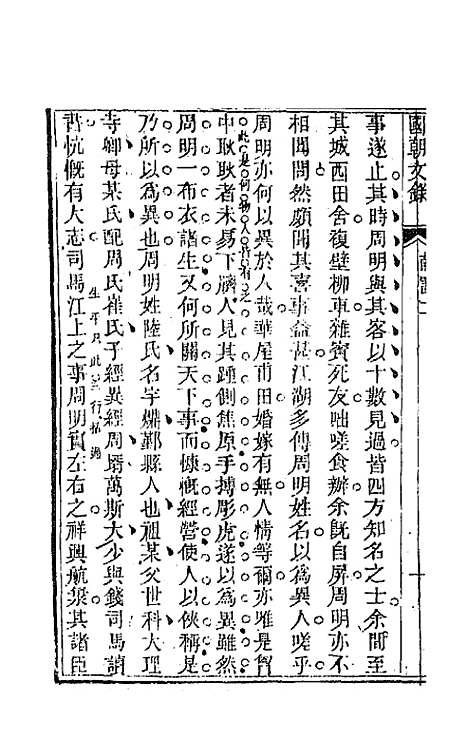 國朝文錄
事遂止其時周明與其客以十數見過皆四方知名之士余間至
其城西田舍複壁柳車雜賓死友咄嗟食辦余旣自屏周明亦不
相聞問然頗聞其喜事益甚江湖多傳周明姓名以爲異人嗟乎
周明亦何以異於人哉華屋甫田婚嫁有無人情等爾亦唯是胷
此是何物人皆有之
中耿耿者未易下臍人見其踵側焦原手搏彫虎遂以爲異雖然
周明一布衣諸生又何所關天下事而慷慨經營使人以俠稱是
乃所以爲異也周明姓陸氏名字爌鄞縣人也祖某父世科大理
寺卿母某氏配周氏崔氏子經異經周壻萬斯大少與錢司馬讀
生平只此三行括過
書忼慨有大志司馬江上之事周明實左右之祥興航海其諸臣